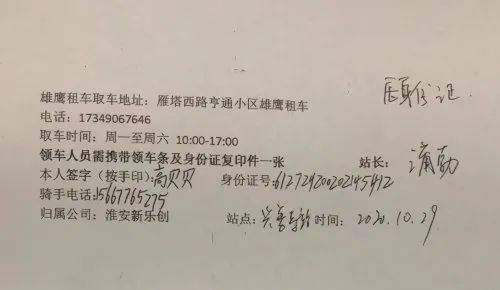 雄鹰租车取车地址：雁塔西路亨通小区雄鹰租车
电话：17349067646
取车时间：周一至周六 10:00-17:00
领车人员需携带领车条及身份证复印件一张 站长：
本人签字（按手印）：高贝贝 身份证号：612724200202145412
骑手电话：15667765275
归属公司：淮安新乐创 站点： 时间：2020.10.29